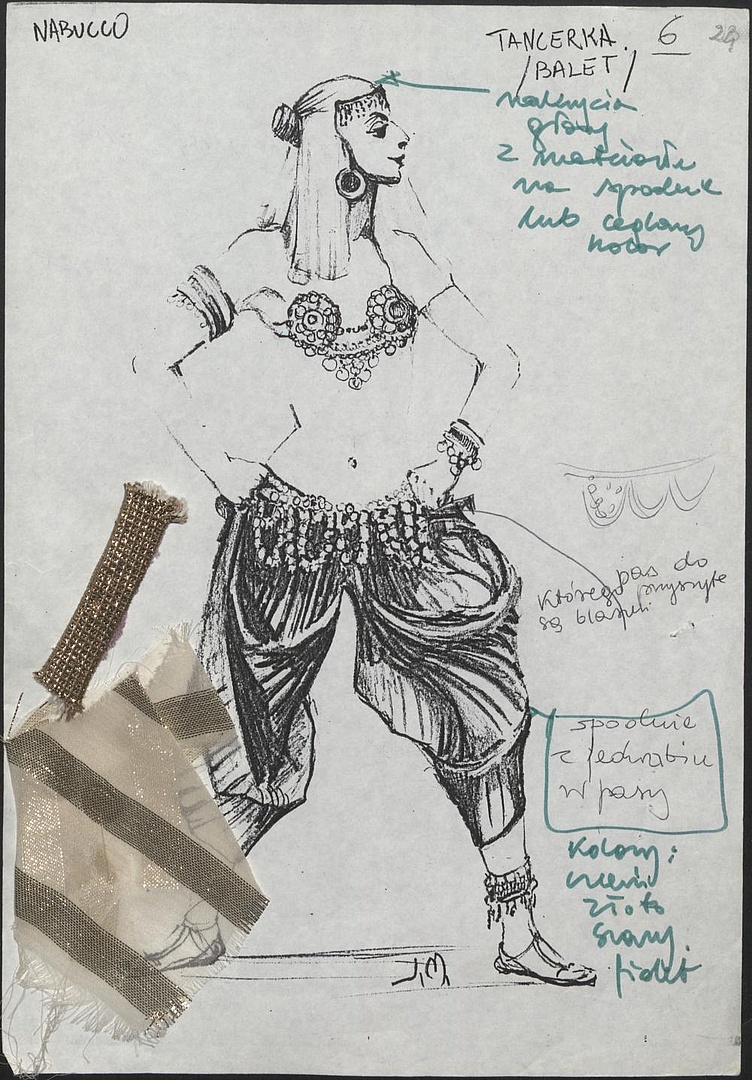 NABUCCO
TANCERKA. 6
/BALET/
nakrycie
głowy
z materiału
na spodnie
lub ceglany
kolor
pas do
którego przyszyte
są blaszki
spodnie
z jedwabiu
w pasy
Kolory:
czerń
złoto
szary
fiolet
JM